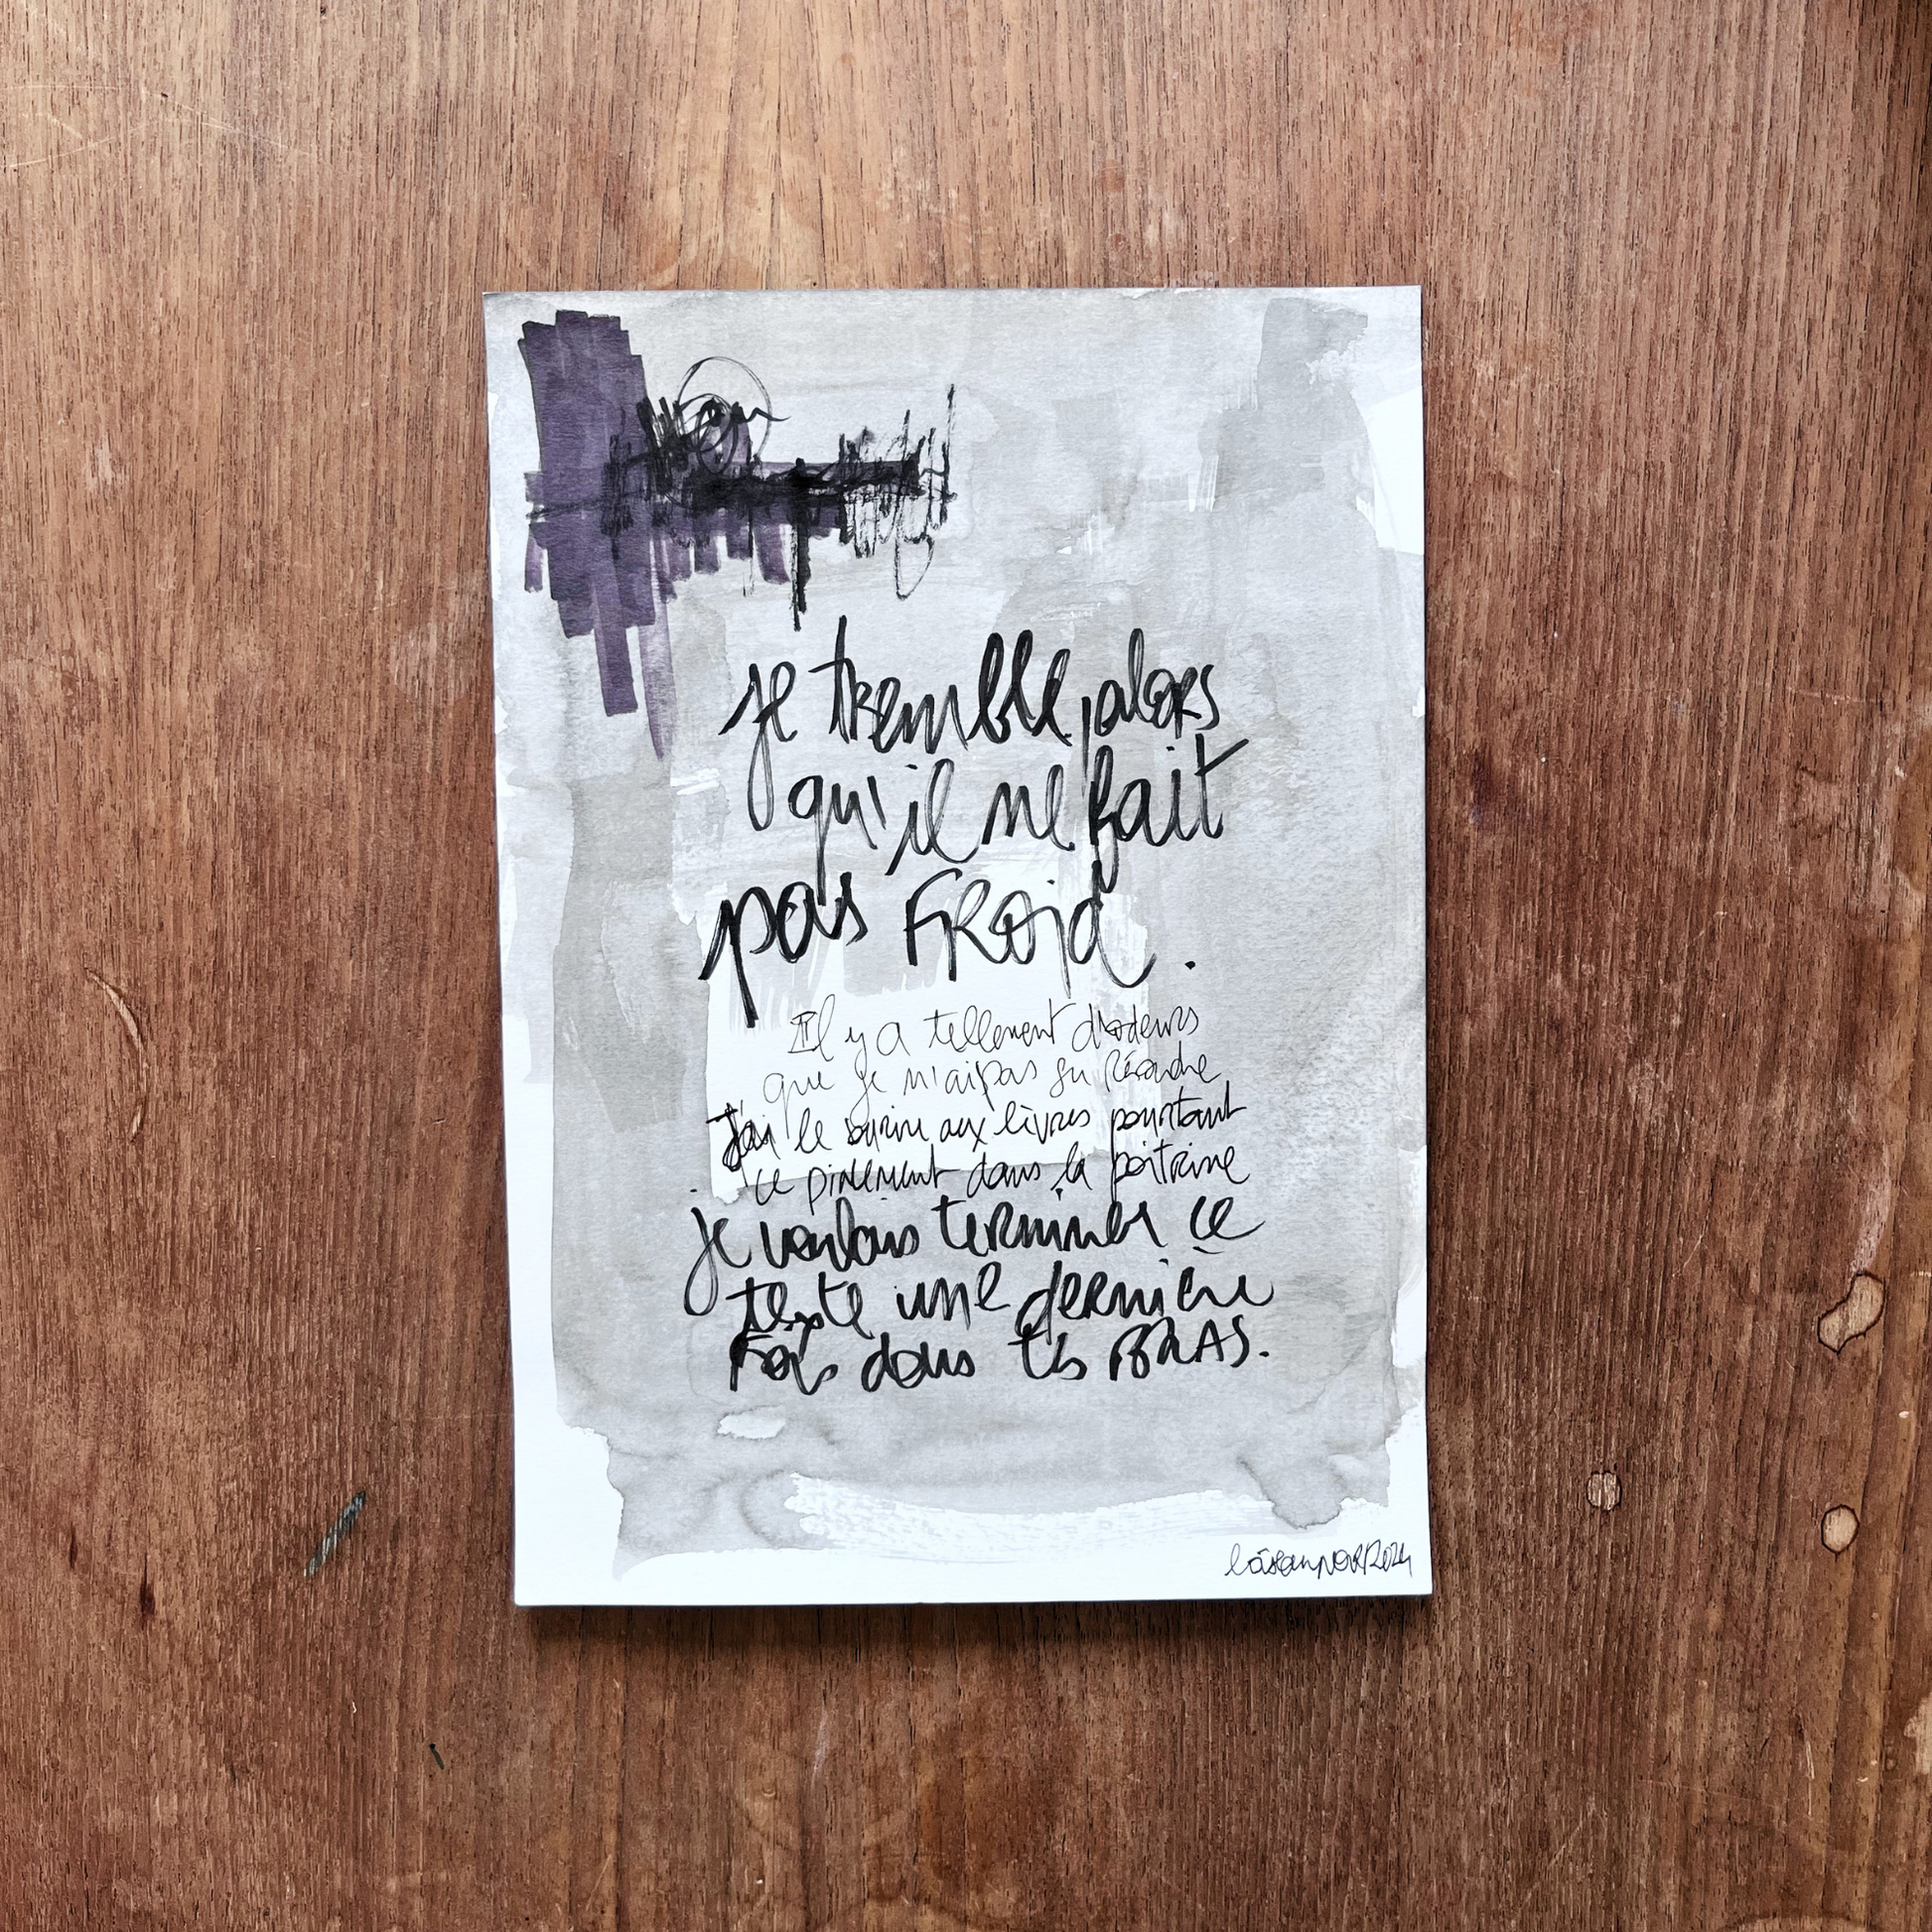 je tremble, alors
qu'il ne fait
pas FROID.
Il y a tellement d'odeurs
que je n'ai pas su résoudre
J'ai le sourire aux lèvres pourtant
ce pincement dans la poitrine
je voulais terminer ce
texte une dernière
fois dans tes BRAS.
2024